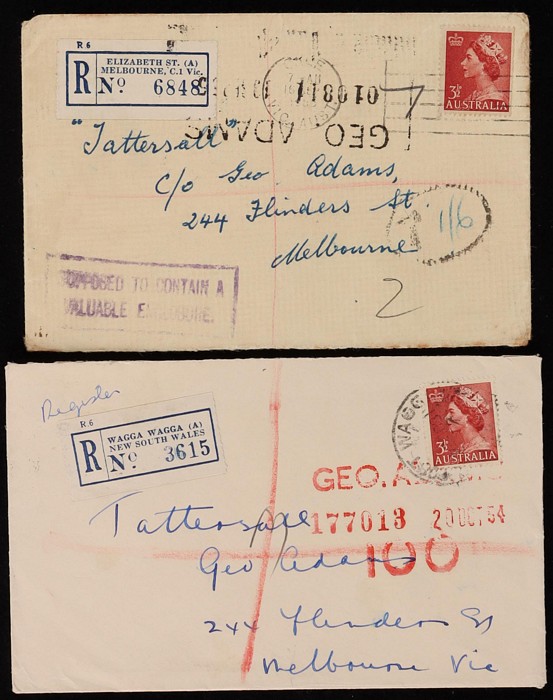 R 6
R
ELIZABETH ST. (A)
MELBOURNE, C.1 Vic.
No 6848
3½
AUSTRALIA
GEO ADAMS
"Tattersall"
c/o Geo. Adams,
244 Flinders St.
Melbourne
1/6
SUPPOSED TO CONTAIN A
VALUABLE ENCLOSURE.
2
Register
R.6
R
WAGGA WAGGA (A)
NEW SOUTH WALES
No 3615
WAGGA
3½
AUSTRALIA
GEO. A
177013 20 OCT 54
100
Tattersall
Geo Adams
244 Flinders St
Melbourne Vic